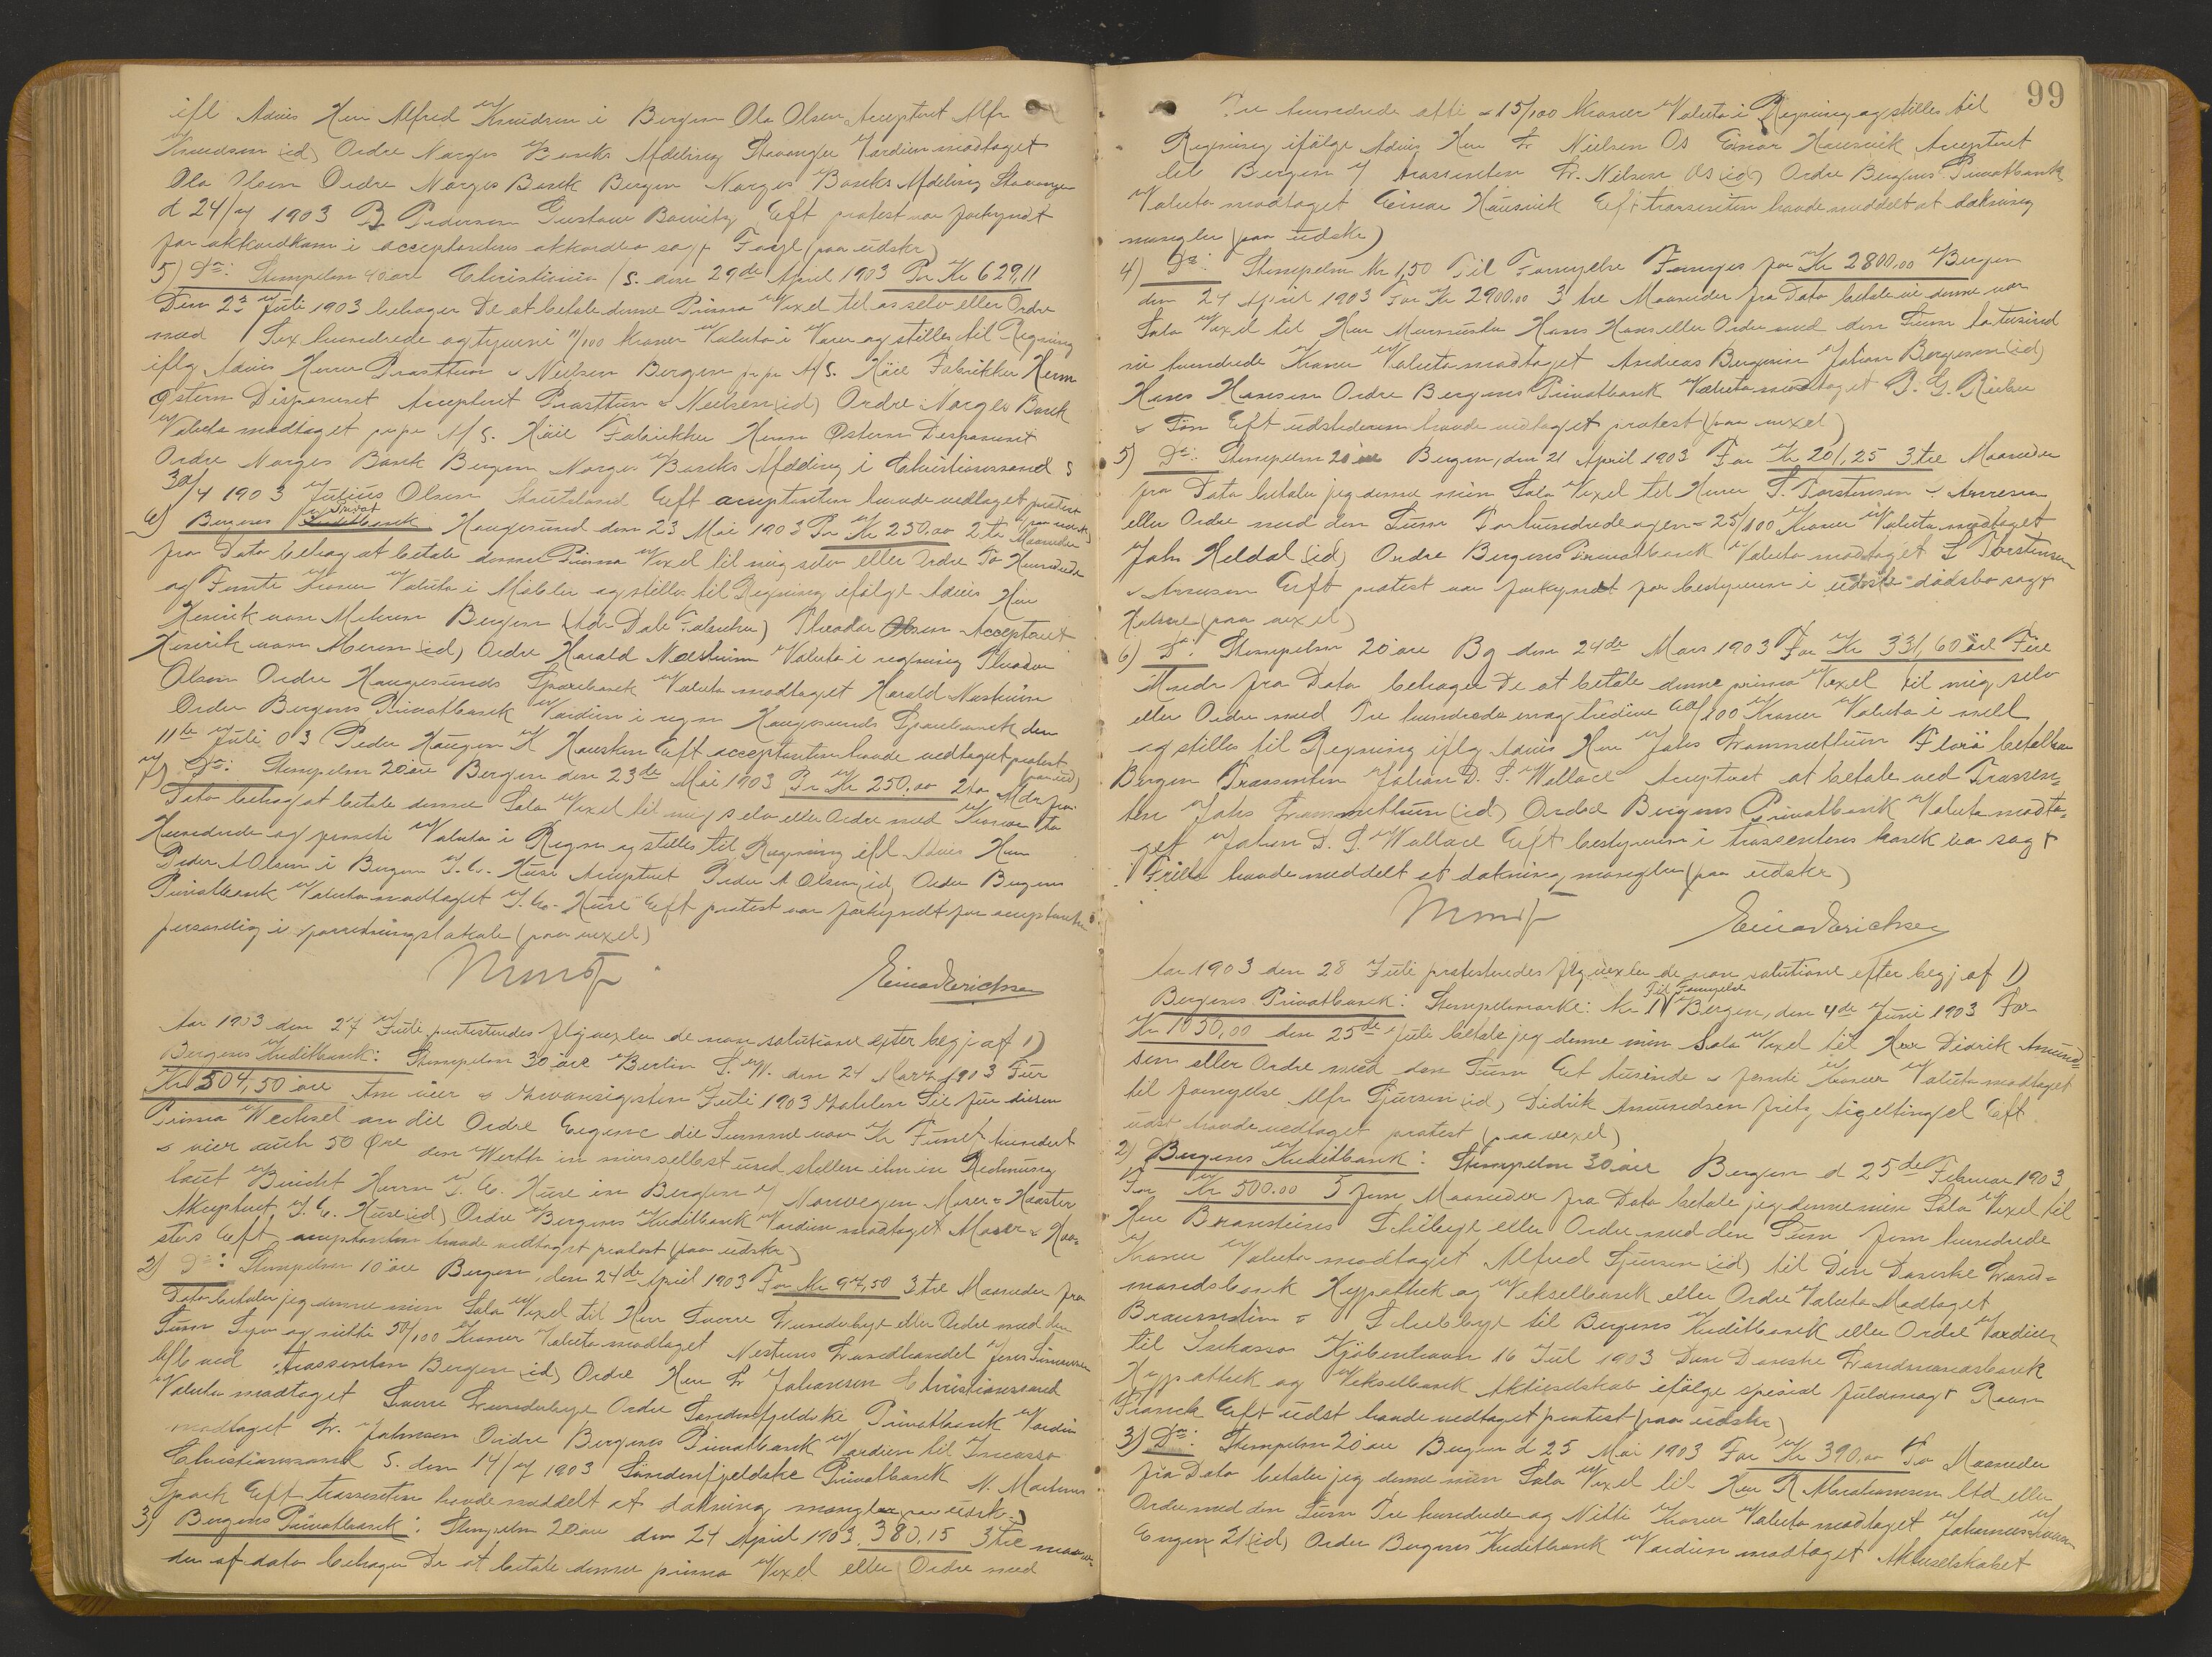 ifl Advis Herr Alfred Knudsen i Bergen Ola Olsen Acceptert Alfr
Knudsen (id) Ordre Norges Banks Afdeling Stavanger Værdien modtaget
Ola Olsen Ordre Norges Bank Bergen Norges Banks Afdeling Stavanger
d 24/7 1903 B Pedersen Gustav Eft protest var forkyndt
for i acceptantens akkordbo sagf (paa udskr)
5) Do: Stempelm 40 øre Christiania /S. den 29de April 1903 Pr Kr 629,11
Den 23 Juli 1903 behager De at betale denne Prima Vexel til os selv eller Ordre
med Sex hundrede og tyveni 11/100 Kroner Valuta i Varer og stilles til Regning
iflg Advis Herrer Prasttun & Neilsen Bergen pr pr A/S. Höie Fabrikker Herm
Østern Disponent Accepteret Prasttun & Neilsen (id) Ordre Norges Bank
Valuta modtaget pr pr A/S. Höie Fabrikker Herm Østern Disponent
Ordre Norges Bank Bergen Norges Banks Afdeling i Christianssand S
30/4 1903 Julius Olsen Eft acceptanten havde vedtaget protest
6) Bergens Privat Kreditbank Haugesund den 23 Mai 1903 Pr Kr 250.00 2 to Maaneder (paa udskr)
fra Dato behag at betale denne Prima Vexel til mig selv eller Ordre To Hundrede
og Femti Kroner Valuta i Møbler og stilles til Regning ifølge Advis Herr
Henrik von Mehren Bergen (Adr Dale Fabriker) Theodor Olsen Accepteret
Henrik von Meren (id) Ordre Harald Næstrüm Valuta i regning Theodor
Olsen Ordre Haugesunds Sparebank Valuta modtaget Harald Nastrüm
Ordre Bergens Privatbank Værdien i regn Haugesunds Sparebank den
11te Juli 03 Peder Haugen K Hausken Eft acceptanten havde vedtaget protest (paa ud)
7) Do: Stempelm 20 øre Bergen den 23de Mai 1903 Pr Kr 250.00 2to Mdr fra
Dato behag at betale denne Sola Vexel til mig selv eller Ordre med Kroner to
Hundrede og femti Valuta i Regn og stilles til Regning ifl Advis Herr
Peder A Olsen i Bergen J. C. Huse Accepteret Peder A Olsen (id) Ordre Bergens
Privatbank Valuta modtaget J. C. Huse Eft protest var forkyndt for acceptanten
personlig i forretningslokale (paa vexel)
Einar Erichsen
Aar 1903 den 27 Juli protesteredes flg vexler de non solutione efter begj af 1)
Bergens Kreditbank: Stempelm 30 øre Berlin S. W. den 24 Marz 1903 Für
Kr 504,50 øre Am vier & zwanzigsten Juli 1903 zahlen Sie für diesen
Prima Wechsel an die Ordre Eigene die Summe von Kr Fünf hundert
& vier auch 50 Øre den Werth in mir selbst und stellen ihn in Rechnung
laut Bericht Herrn J. C. Huse in Bergen i/ Norwegen Moser & Haaster
Akzeptert J. C. Huse (id) Ordre Bergens Kreditbank Værdien modtaget Moser & Haa-
sters Eft acceptanten havde vedtaget protest (paa udskr)
2) Do: Stempelm 10 øre Bergen, den 24de April 1903 For Kr 97,50 3 tre Maaneder fra
Dato betaler jeg denne min Sola Vexel til Herr Sverre Lunderbye eller Ordre med den
Sum Syv og nitti 50/100 Kroner Valuta modtaget Nestuns Landhandel Jens Simonsen
bstb ved trassenten Bergen (id) Ordre Herr Dr Johansen Christianssand
Valuta modtaget Sverre Lunderbye Ordre Søndenfjeldske Privatbank Værdien
modtaget Dr. Johnsen Ordre Bergens Privatbank Værdien til Incasso
Christianssand S. den 14/7 1903 Söndenfjeldske Privatbank N. Martens
Eft trassenten havde meddelt at dækning mangler paa udsk.)
3) Bergens Privatbank: Stempelm 20 øre den 24 April 1903. 380.15 3 tre maane-
der af dato behager De at betale denne prima Vexel eller Ordre med
99
Tre hundrede otti & 15/100 Kroner Valuta i Regning og stilles til
Regning ifölge Advis Herr Dr Nielsen Os Einar Hausvik Accepteret
bet Bergen v/ trassenten Dr. Nilsen Os (id) Ordre Bergens Privatbank
Valuta modtaget Einar Hausvik Eft trassenten havde meddelt at dækning
mangler (paa udskr)
4) Do: Stempelm Kr 1,50 Til Fornyelse Fornyes for Kr 2800,00 Bergen
den 24 April 1903 For Kr 2900.00 3 tre Maaneder fra Dato betale vi denne vor
Sola Vexel til Herr Murmester Hans Hansen eller Ordre med den Sum to tusind
ni hundrede Kroner Valuta modtaget Andreas Børgesen Johan Børgesen (id)
Hans Hansen Ordre Bergens Privatbank Valuta modtaget P. G. Rieber
& Søn Eft udstederen havde vedtaget protest (paa vexel)
5) Do: Stempelm 20 øre Bergen, den 21 April 1903 For Kr 201,25 3 tre Maaneder
fra Dato betaler jeg denne min Sola Vexel til Herrer S. Torstensen & Arnesen
eller Ordre med den Sum To hundrede og en & 25/100 Kroner Valuta modtaget
John Heldal (id) Ordre Bergens Privatbank Valuta modtaget S Thorstensen
& Arnesen Eft protest var forkyndt for bestyreren i udsts dødsbo sagf
(paa vexel)
6) Do: Stempelm 20 øre Bg den 24de Mars 1903 For Kr 331,60 øre Fire
Maaneder fra Dato behager De at betale denne prima Vexel til mig selv
eller Ordre med Tre hundrede en og tredive 60/100 Kroner Valuta i mell
og stilles til Regning iflg Advis Herr Johs Florø betalbar
Bergen Trassenten Johan D. S. Wallace Accepteret at betale ved Trassen-
ten Johs (id) Ordre Bergens Privatbank Valuta modta-
get Johan D. S. Wallace Eft bestyreren i trassentens konk bo sagf
havde meddelt at dækning mangler (paa udskr)
Einar Erichsen
Aar 1903 den 28 Juli protesteredes flg vexler de non solutione efter begj af 1)
Bergens Privatbank: Stempelmærke: Kr 1 Til Fornyelse Bergen, den 4de Juni 1903 For
Kr 1050,00 den 25de Juli betale jeg denne min Sola Vexel til Herr Didrik Amund-
sen eller Ordre med den Sum Et tusinde & femti Kroner Valuta modtaget
til fornyelse Alfr Sjursen (id) Didrik Amundsen Eft
udst havde vedtaget protest (paa vexel)
2) Bergens Kreditbank: Stempelm 30 øre Bergen d 25de Februar 1903
For Kr 500.00 5 fem Maaneder fra Dato betale jeg denne min Sola Vexel til
Herr Braunsteins Schibbye eller Ordre med den Sum Fem hundrede
Kroner Valuta modtaget Alfred Sjursen (id) til Den Danske Land-
mandsbank Hypothek og Vekselbank eller Ordre Valuta Modtaget
Braunstein & Schibbye til Bergens Kreditbank eller Ordre Værdien
til Inkasso Kjøbenhavn 16 Jul 1903 Den Danske Landmandsbank
Hypothek og Vekselbank Aktieselskab ifølge special fuldmagt Raun
Franck Eft udst havde vedtaget protest (paa udskr)
3) Do: Stempelm 20 øre Bergen d 25 Mai 1903 For Kr 390,00 To Maaneder
fra Dato betaler jeg denne min Sola Vexel til Herr R Abrahamsen Ltd eller
Ordre med den Sum Tre hundrede og Nitti Kroner Valuta modtaget Johannes
Engen 21 (id) Ordre Bergens Kreditbank Værdien modtaget Aktieselskabet